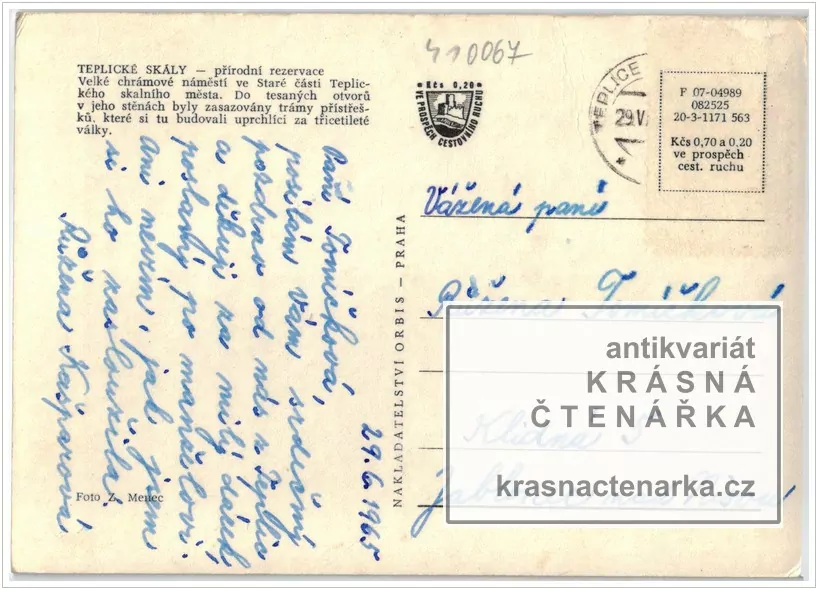 410067
TEPLICKÉ SKÁLY — přírodní rezervace
Velké chrámové náměstí ve Staré části Teplic-
kého skalního města. Do tesaných otvorů
v jeho stěnách byly zasazovány trámy přístřeš-
ků, které si tu budovali uprchlíci za třicetileté
války.
Kčs 0,20
VE PROSPĚCH CESTOVNÍHO RUCHU
TEPLICE
29.VI
1
F 07-04989
082525
20-3-1171 563
Kčs 0,70 a 0.20
ve prospěch
cest. ruchu
Paní Tomíčková,
posílám Vám srdečný
pozdrav od nás z Teplic
a děkuji za milý dárek
poslaný po manželovi.
Ani nevím, jak jsem
si ho zasloužila.
Růžena Kašparová
29.6.1965
NAKLADATELSTVÍ ORBIS — PRAHA
Vážená paní
Růžena Tomíčková
Klidná
antikvariát
KRÁSNÁ
ČTENÁŘKA
krasnactenarka.cz
Foto Z. Menec